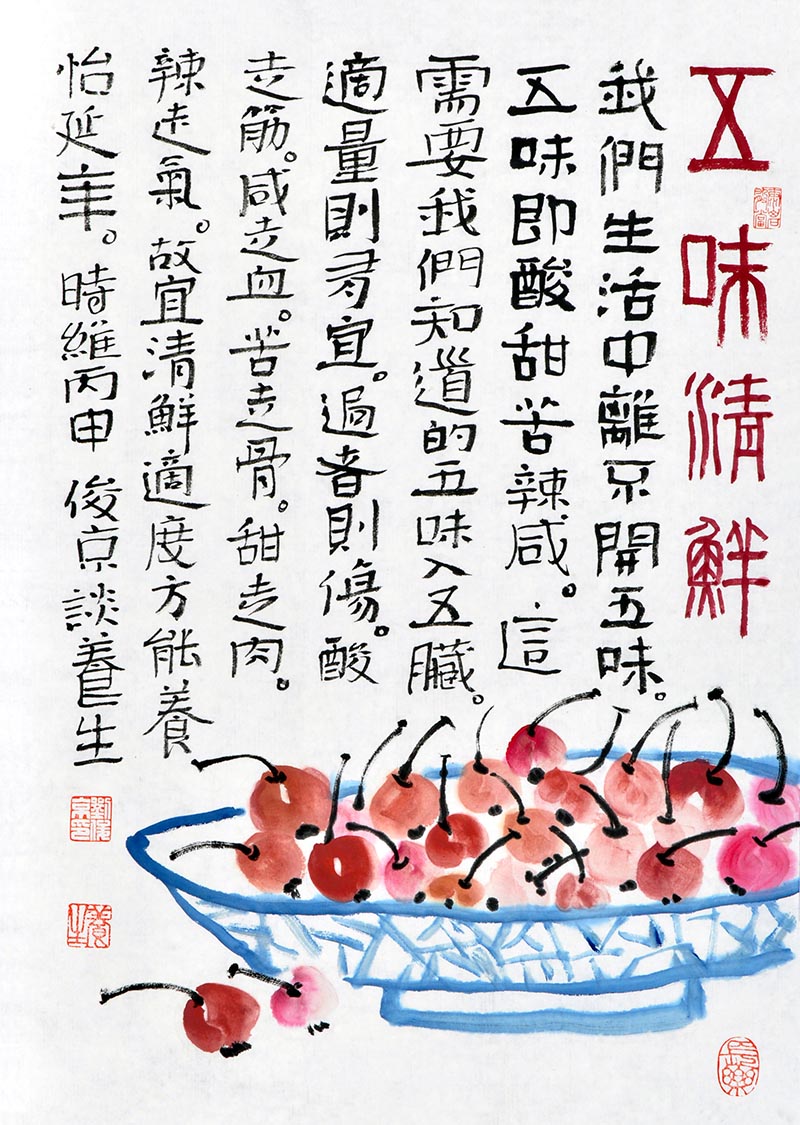 五味清鮮
我們生活中離不開五味。
五味即酸甜苦辣咸。這
需要我們知道的五味入五臟。
適量則为宜。過者則傷。酸
走筋。咸走血。苦走骨。甜走肉。
辣走氣。故宜清鮮適度方能養
怡延年。時維丙申 俊京談養生
劉俊京印
養生